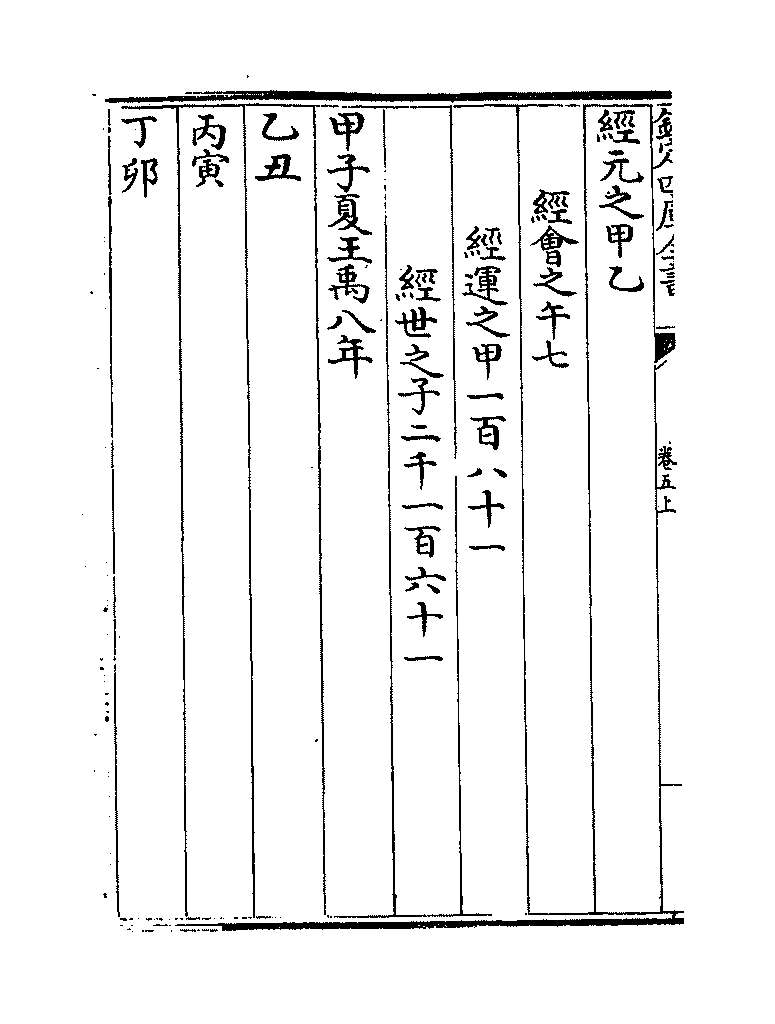 欽定四庫全書
卷五上
經元之甲乙
經會之午七
經運之甲一百八十一
經世之子二千一百六十一
甲子夏王禹八年
乙丑
丙寅
丁卯